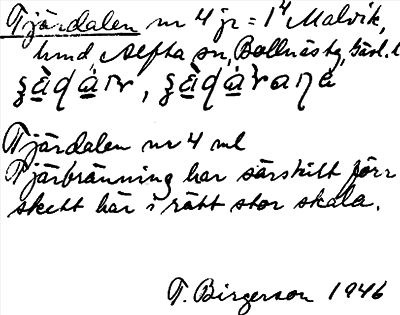 Tjärdalen nr 4 jr = 1⁴ Malvik,
hmd, Alfta sn, Bollnäs tg, Gävl. l

Tjärdalen nr 4 ml
Tjärbränning har särskilt förr
skett här i rätt stor skala.
T. Birgerson 1946